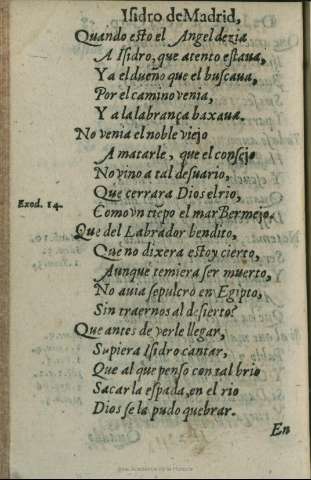 Isidro de Madrid,
Quando esto el Angel dezia
A Isidro, que atento estaua,
Ya el dueño que el buscaua,
Por el camino venia,
Y a la labrança baxaua.
No venia el noble viejo
A matarle, que el consejo
No vino a tal desuario,
Que cerrara Dios el rio,
Exod. 14. Como vn tiẽpo el mar Bermejo.
Que del Labrador bendito,
Que no dixera estoy cierto,
Aunque temiera ser muerto,
No auia sepulcro en Egipto,
Sin traernos al desierto?
Que antes de verle llegar,
Supiera Isidro cantar,
Que al que penso con tal brio
Sacar la espada, en el rio
Dios se la pudo quebrar.
En
Real Academia de la Historia